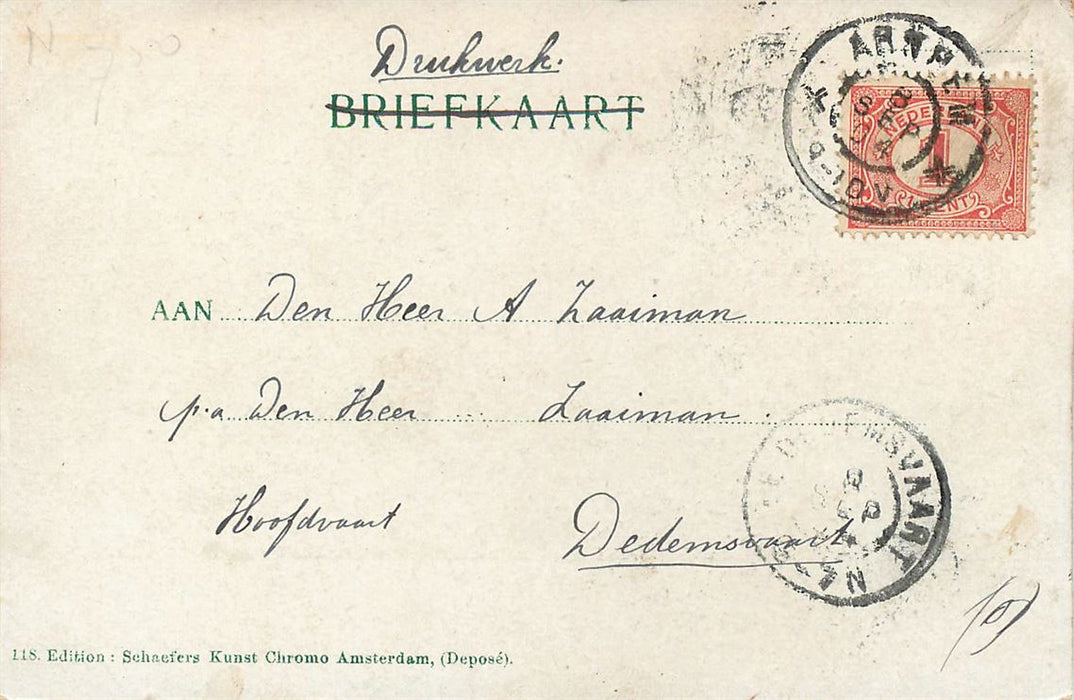 N 7
Drukwerk.
BRIEFKAART
ARNHEM
8 SEP
9-10V
NEDERLAND
1
CENT
AAN Den Heer A Zaaiman
p.a Den Heer Zaaiman.
Hoofdvaart Dedemsvaart
DEDEMSVAART
8 SEP
118. Edition : Schaefers Kunst Chromo Amsterdam, (Deposé).